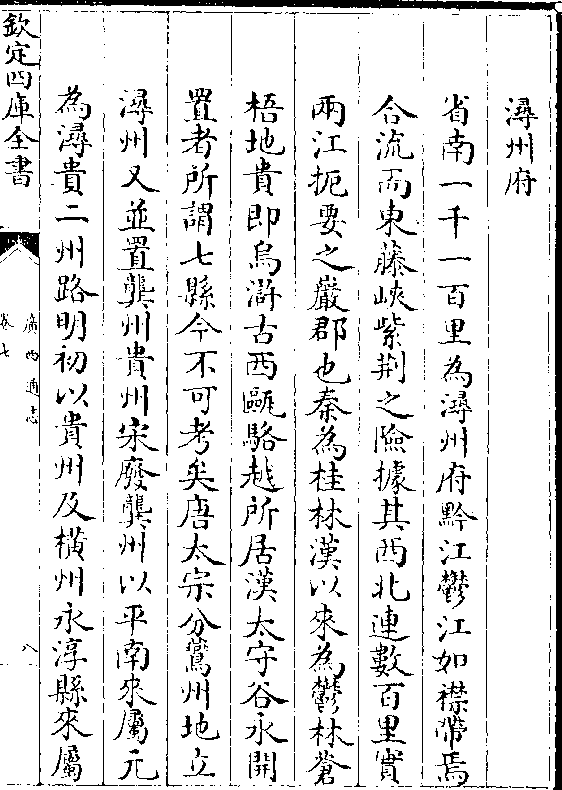 潯州府
省南一千一百里為潯州府黔江鬱江如襟帶焉
合流而東藤峽紫荆之險據其西北連數百里實
兩江扼要之巖郡也秦為桂林漢以來為鬱林蒼
梧地貴即烏滸古西甌駱越所居漢太守谷永開
置者所謂七縣今不可考矣唐太宗分鷰州地立
潯州又並置龔州貴州宋廢龔州以平南來屬元
為潯貴二州路明初以貴州及橫州永淳縣來屬
欽定四庫全書
廣西通志
卷七
八